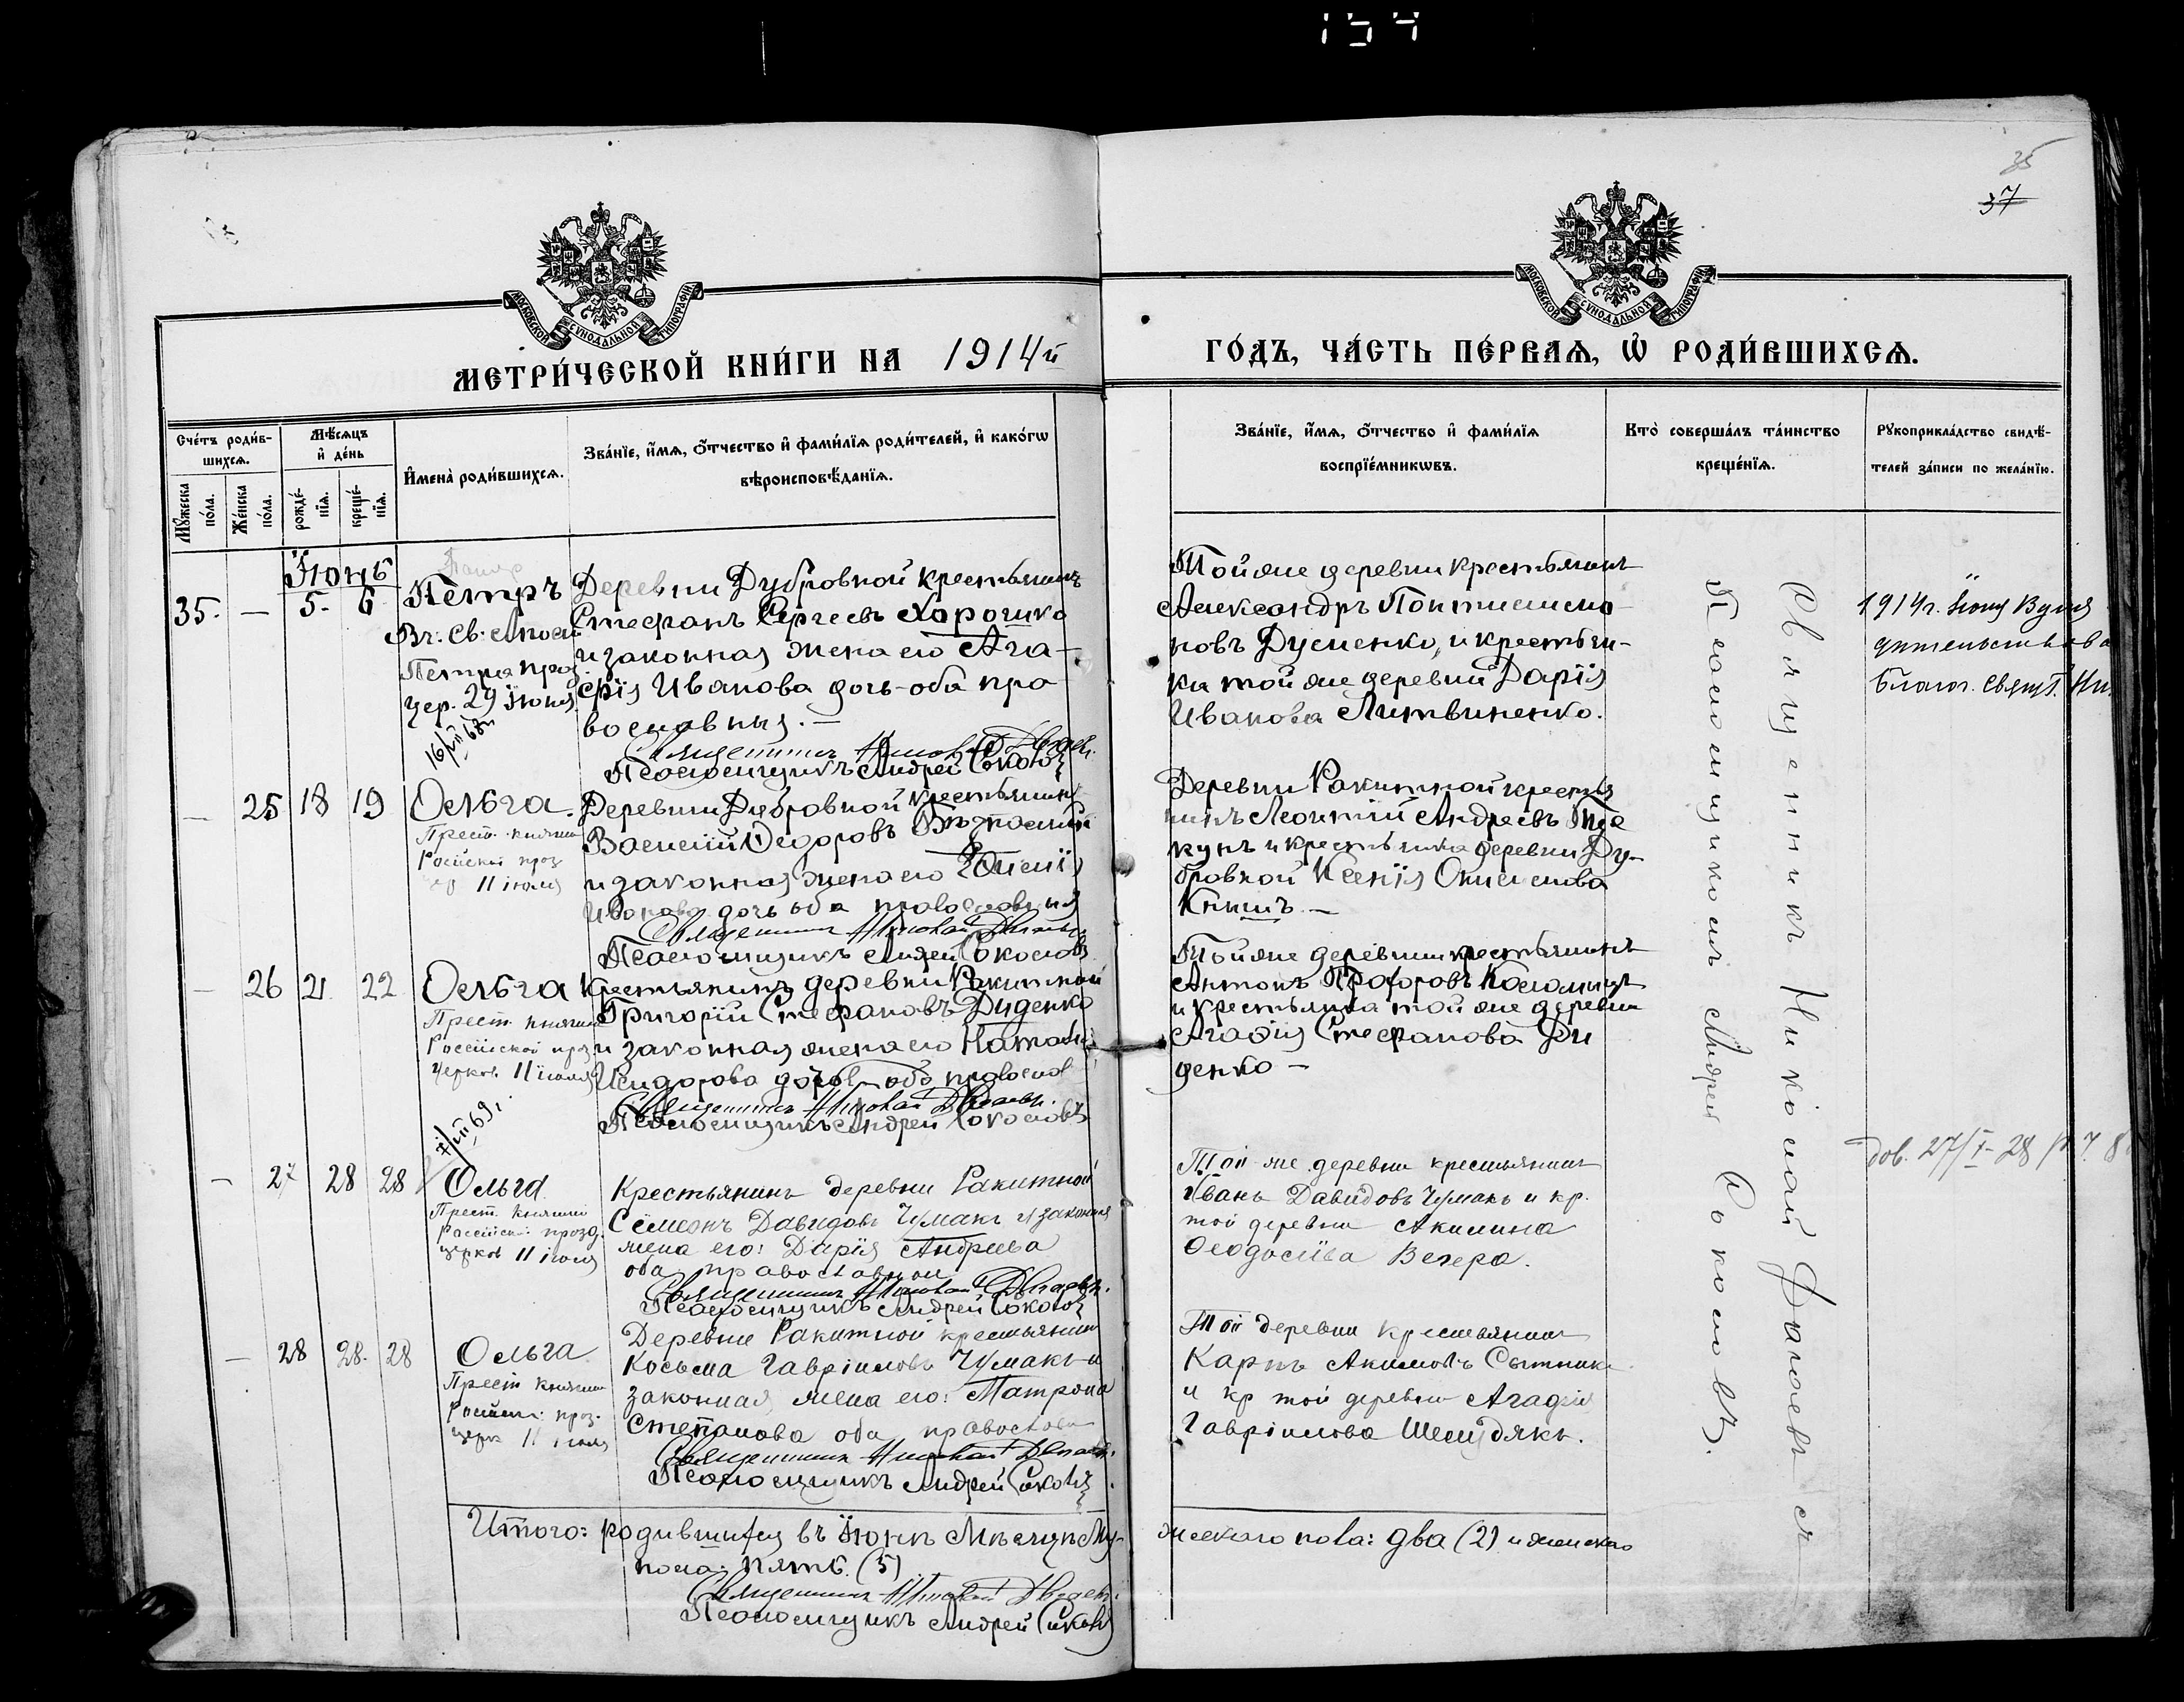 154
35
37
МОСКОВСКОЙ СѴНОДАЛЬНОЙ ТИПОГРАФІИ
МОСКОВСКОЙ СѴНОДАЛЬНОЙ ТИПОГРАФІИ
МЕТРИ́ЧЕСКОЙ КНИ́ГИ НА 1914й
ГО́ДЪ, ЧА́СТЬ ПЕ́РВАѦ, Ѡ҆ РОДИ́ВШИХСѦ.
Сче́тъ роди́в-
шихсѧ.
Мꙋ́жеска
по́ла.
Же́нска
по́ла.
Мѣ́сѧцъ
и҆ де́нь
рожде́-
нїѧ.
креще́-
нїѧ.
И҆мена̀ роди́вшихсѧ.
Зва́нїе, и҆́мѧ, ѻ҆́тчество и҆ фами́лїѧ роди́телей, и҆ како́гѡ
вѣроисповѣ́данїѧ.
Зва́нїе, и҆́мѧ, ѻ҆́тчество и҆ фами́лїѧ
воспрїе́мникѡвъ.
Кто̀ соверша́лъ та́инство
креще́нїѧ.
Рꙋкоприкла́дство свидѣ́-
телей за́писи по жела́нїю.
Іюнь
35. — 5. 6
Петръ
Вг. Св. Апос
Петра праз.
цер. 29 Іюня
16/VII 68г
Деревни Дубровной крестьянинъ
Стефанъ Сергеевъ Хорошко
и законная жена его Ага-
фія Иванова дочь-оба пра
вославныя. —
Священникъ Николай Двгаев.
Псаломщикъ Андрей Соколовъ
Той же деревни крестьянинъ
Александръ Понтиелимо-
новъ Дусменко, и крестьян-
ка той же деревни Дарія
Иванова Литвиненко.
1914г. Іюня
благоч. Священ. Ни
— 25 18 19
Ольга.
Прест. княгини
Россійской праз
11 іюля
Деревни Дубровной крестьянинъ
Василій Ѳедоровъ
и законная жена его
Иванова дочь оба православныя
Священникъ Николай
Псаломщикъ Андрей Соколовъ
Деревни Ракитной крестья
нинъ Леонтій Андреевъ Тре
кунъ и крестьянка деревни Ду-
бровной Ксенія Онисимова
Книшъ. —
— 26 21 22
Ольга
Прест. княгини
Россійской праз
церков 11 іюля
7/VII 69г.
Крестьянинъ деревни Ракитной
Григорій Стефановъ Диденко
и законная жена его Наталія
Исидорова дочь — оба правосл
Священникъ Николай
Псаломщикъ Андрей Соколовъ
Той же деревни крестьянинъ
Антонъ Прохоровъ Коломыцъ
и крестьянка той же деревни
Агафія Стефанова Ди
денко —
— 27 28 28
Ольга
Прест. княгини
Россійской празд.
церков 11 іюля
Крестьянинъ деревни Ракитной
Семеонъ Давидовъ Чумакъ и законная
жена его: Дарія Андреева
оба православныи
Священникъ Николай
Псаломщикъ Андрей Соколовъ
Той же деревни крестьянинъ
Иванъ Давидовъ Чумакъ и кр.
той деревни Акилина
Ѳеодосіева Вечера.
дов. 27/I-28
— 28 28. 28
Ольга
Прест княгини
Россійской праз.
церк 11 іюля
Деревни Ракитной крестьянинъ
Косьма Гавріиловъ Чумакъ и
законная жена его: Матрона
Степанова оба православн
Священникъ Николай
Псаломщикъ Андрей Соколовъ
Той деревни крестьянинъ
Карпъ Акимовъ Сытникъ
и кр той деревни Агафія
Гавріилова Шелудякъ.
Священникъ Николай
Псаломщикомъ Андрей Соколовъ.
Итого: родившихся въ Іюнѣ Мѣсяцѣ Му-
жескаго пола: два (2) и женскаго
пола: пять. (5)
Священникъ Николай
Псаломщикъ Андрей Соколовъ